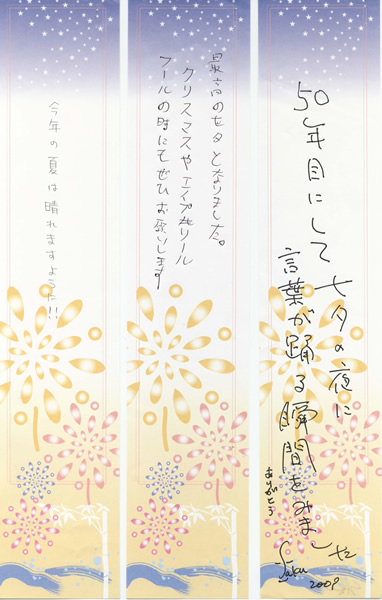 50年目にして七夕の夜に
言葉が踊る瞬間をみまし
た
ありがとう
2009
最高の七夕となりました。
クリスマスやエイプリール
フールの時にもぜひお願いします
今年の夏は晴れますように!!